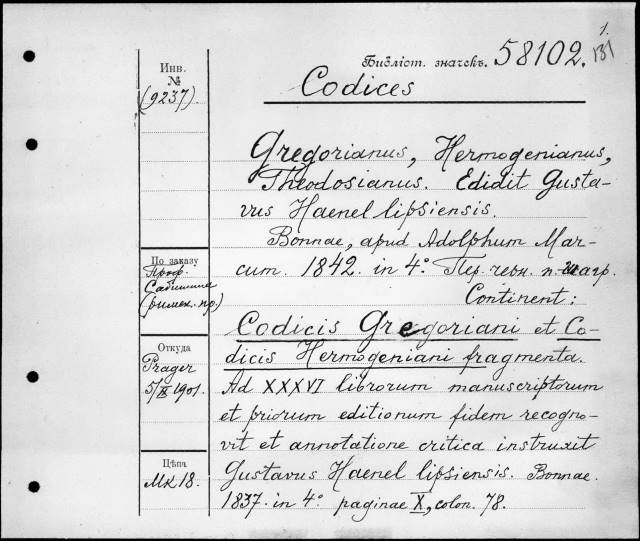 1.
Библіот. значекъ. 58102.
131
Codices
Инв.
№
(9237)
Gregorianus, Hermogenianus,
Theodosianus. Edidit Gusta-
vus Haenel lipsiensis.
Bonnae, apud Adolphum Mar-
cum. 1842. in 4° Пер. черн. п-шагр.
Continent:
По заказу
Проф.
Сабинина
(римск. пр)
Codicis Gregoriani et Co-
dicis Hermogeniani fragmenta.
Откуда
Prager
5/IX 1901.
Ad XXXVI librorum manuscriptorum
et priorum editionum fidem recogno-
vit et annotatione critica instruxit
Gustavus Haenel lipsiensis. Bonnae.
1837. in 4° paginae X, colon. 78.
Цѣна
Мк 18.